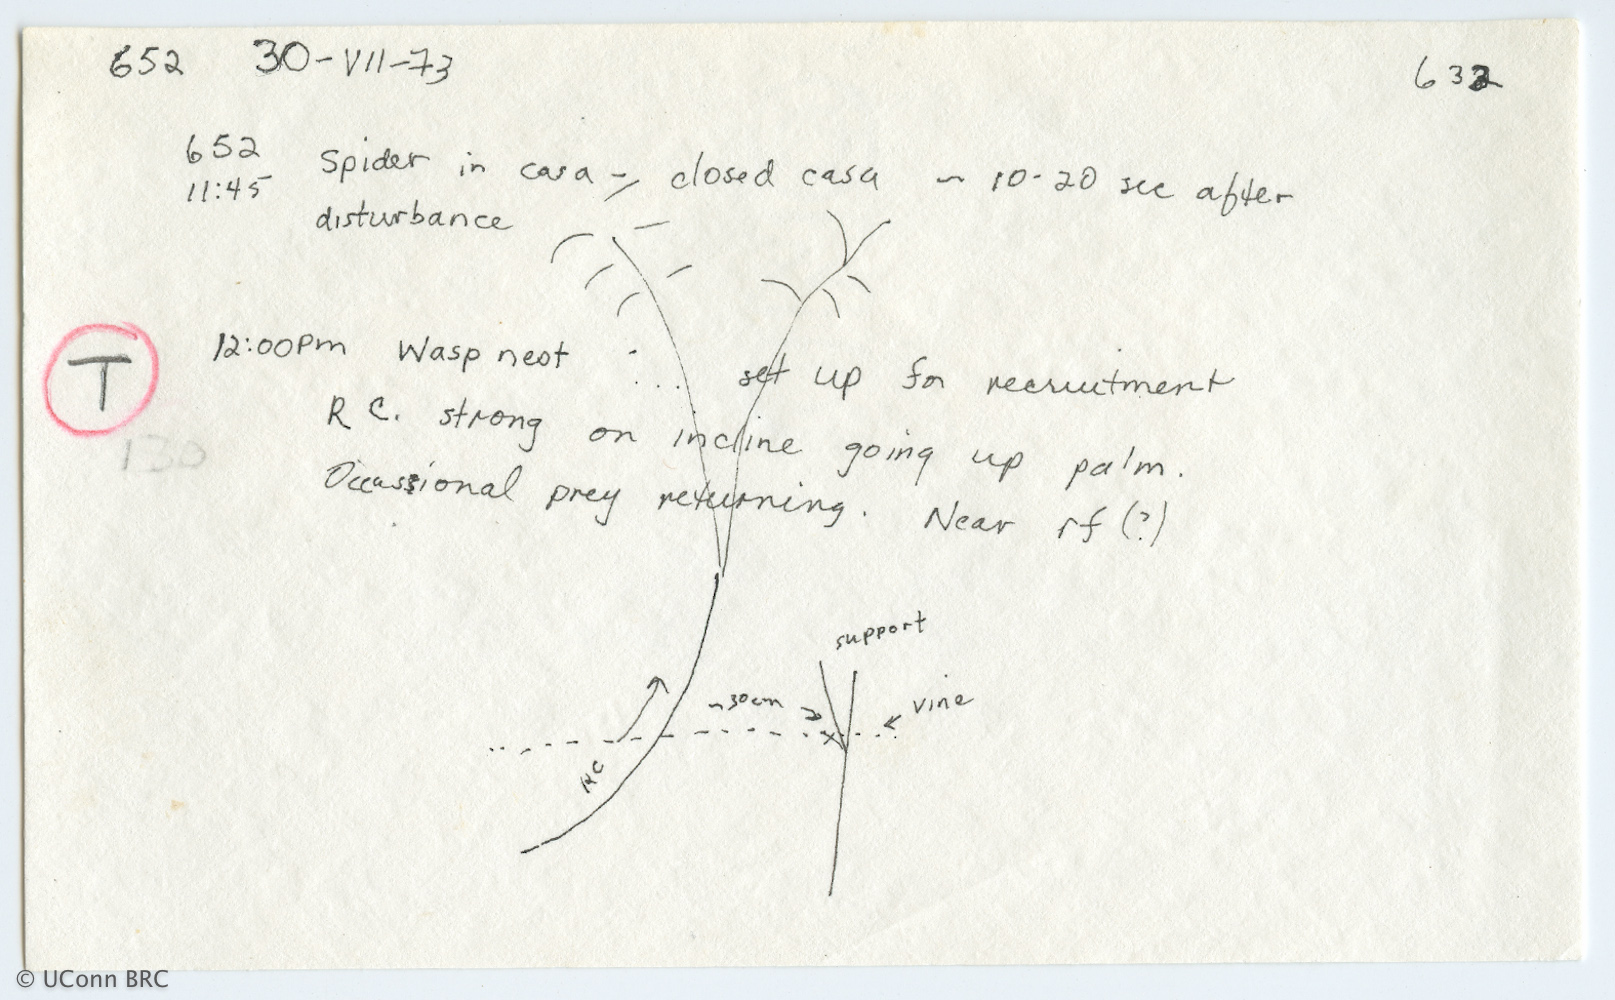 652 30-VII-73 632
652 Spider in casa -, closed casa ~ 10-20 sec after
11:45 disturbance
T 12:00Pm Wasp nest ∴.. set up for recruitment
130 R C. strong on incline going up palm.
Occassional prey returning. Near rf (?)
support
~30cm
vine
RC
© UConn BRC